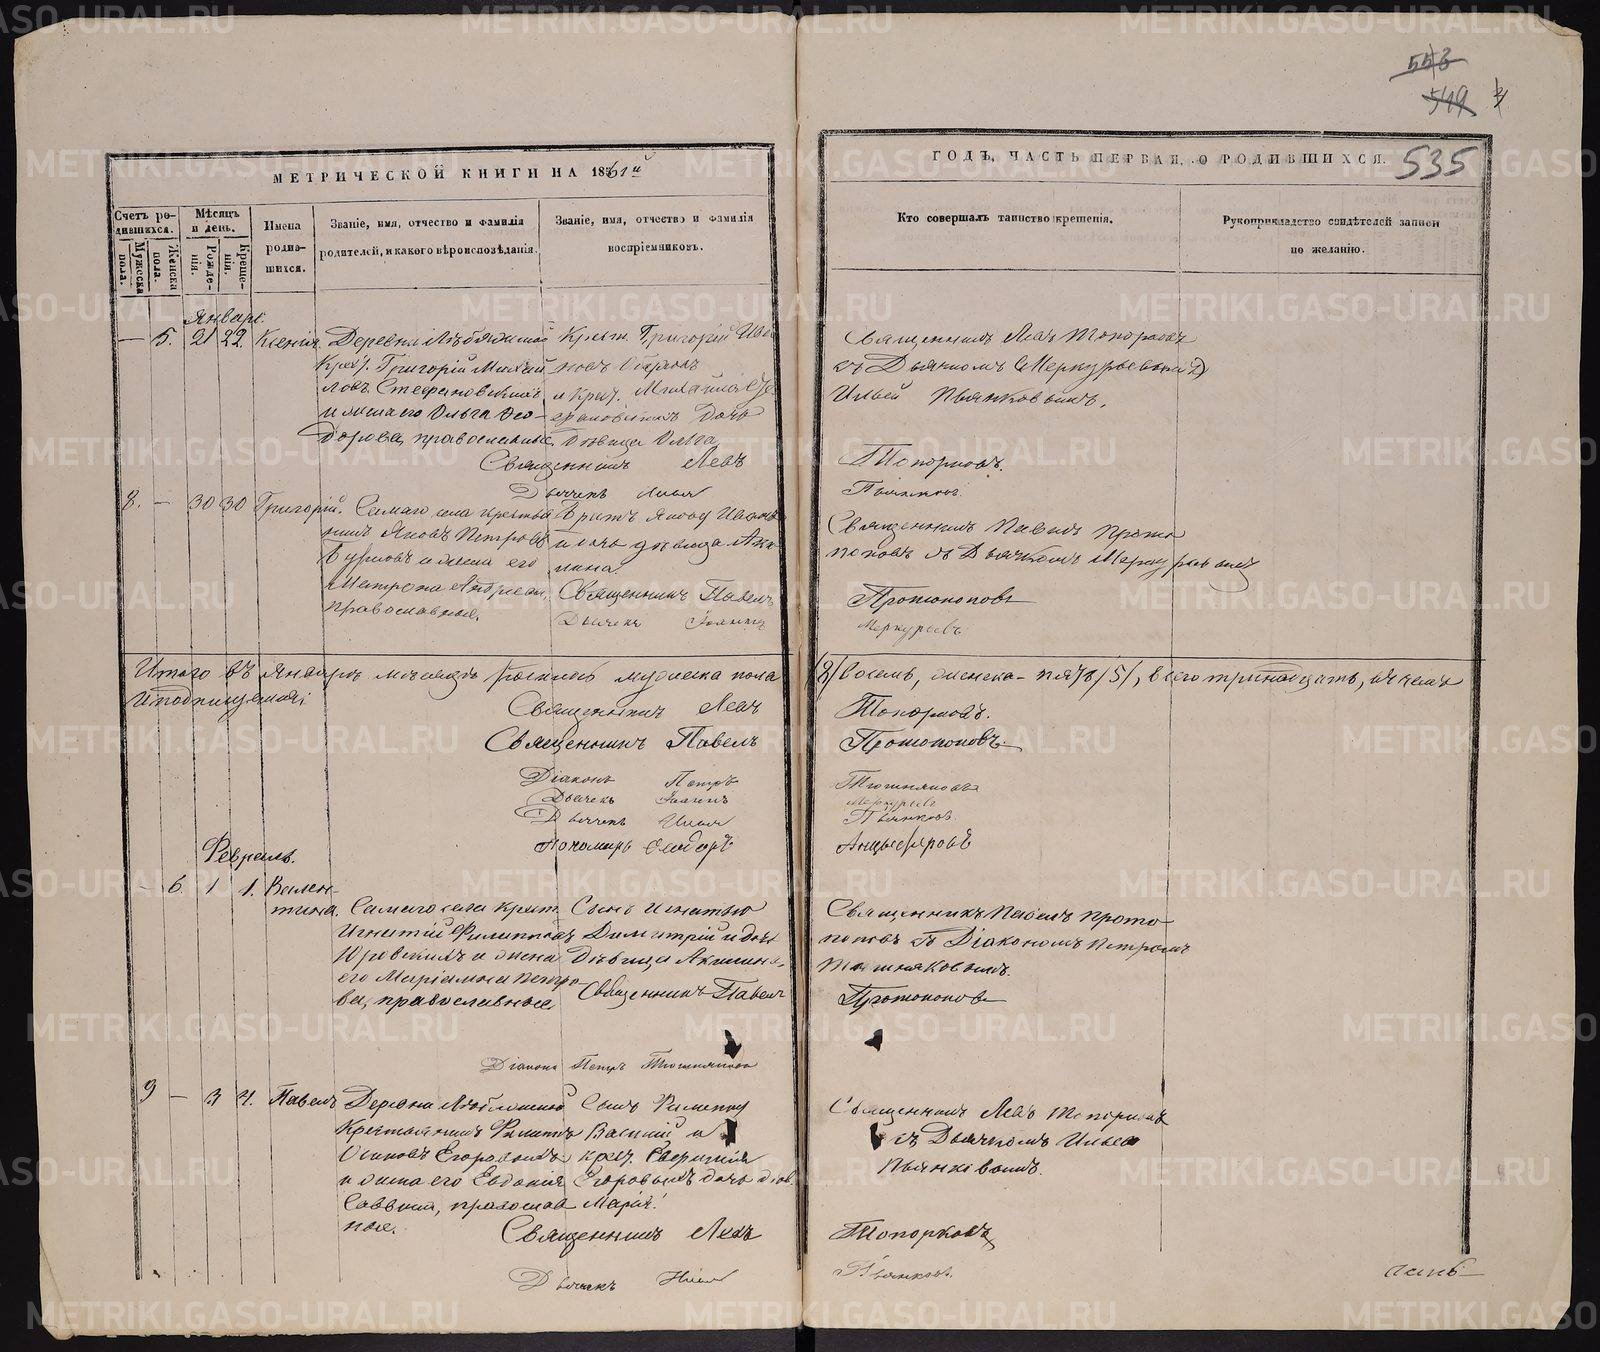 553
549
МЕТРИЧЕСКОЙ КНИГИ НА 1861й
Счетъ ро-
дившихся.
Мужеска
пола.
Женска
пола.
Мѣсяцъ
и день.
Рожде-
нія.
Креще-
нія.
Имена
родив-
шихся.
Званіе, имя, отчество и фамилія
родителей, и какого вѣроисповѣданія.
Званіе, имя, отчество и фамилія
воспріемниковъ.
Январь.
— 5. 21 22. Ксенія
Деревни
Крест. Григорій Михай
ловъ
и жена его Ольга Ѳео-
дорова, православные.
Крест. Григорій Ива
новъ
и Крест. Михаила
дочь
дѣвица Ольга
Священникъ Левъ
Дьячекъ Илья
8. — 30 30 Григорій.
Самаго села крестья
нинъ Яковъ Петровъ
и жена его
Матрона Андреева,
православные.
Братъ Якову Иванъ
и дочь дѣвица
Священникъ Павелъ
Дьячекъ Іоаннъ
Итого въ Январѣ мѣсяцѣ мужеска пола
и подпищемся:
Священникъ Левъ
Священникъ Павелъ
Діаконъ Петръ
Дьячекъ Іоаннъ
Дьячекъ Илья
Пономарь Ѳеодоръ
Февраль.
— 6. 1 1. Вален-
тина.
Самаго села крест.
Игнатій Филипповъ
Юровскихъ и жена
его Маріамна Петро
ва, православные.
Сынъ Игнатью
Димитрій и дочь
дѣвица Акилина,
Священникъ Павелъ
Діаконъ Петръ Тюшняковъ
9 — 3 4. Павелъ
Деревни
Крестьянинъ Филиппъ
Осиповъ Егоровыхъ
и жена его Евдокія
Саввина, православ
ные.
Сынъ Филиппу
Василій и
крест.
Егоровыхъ дочь дѣв.
Марія.
Священникъ Левъ
Дьячекъ Илья
ГОДЪ, ЧАСТЬ ПЕРВАЯ, О РОДИВШИХСЯ.
535
Кто совершалъ таинство крещенія.
Рукоприкладство свидѣтелей записи
по желанію.
Священникъ Левъ Топорковъ
съ Дьячкомъ
Ильей Пьянковымъ.
Топорковъ.
Пьянковъ.
Священникъ Павелъ Прото
поповъ съ Дьячкомъ Меркурьевымъ
Протопоповъ
Меркурьевъ
/8/ восемь, женска- пять /5/, всего тринадцать, въ чемъ
Топорковъ.
Протопоповъ.
Тюшняковъ
Меркурьевъ
Пьянковъ.
Анцыферовъ
Священникъ Павелъ Прото
поповъ съ Діакономъ Петромъ
Тюшняковымъ.
Протопоповъ
Священникъ Левъ Топорковъ
съ Дьячкомъ Ильею
Пьянковымъ.
Топорковъ
Пьянковъ.
METRIKI.GASO-URAL.RU